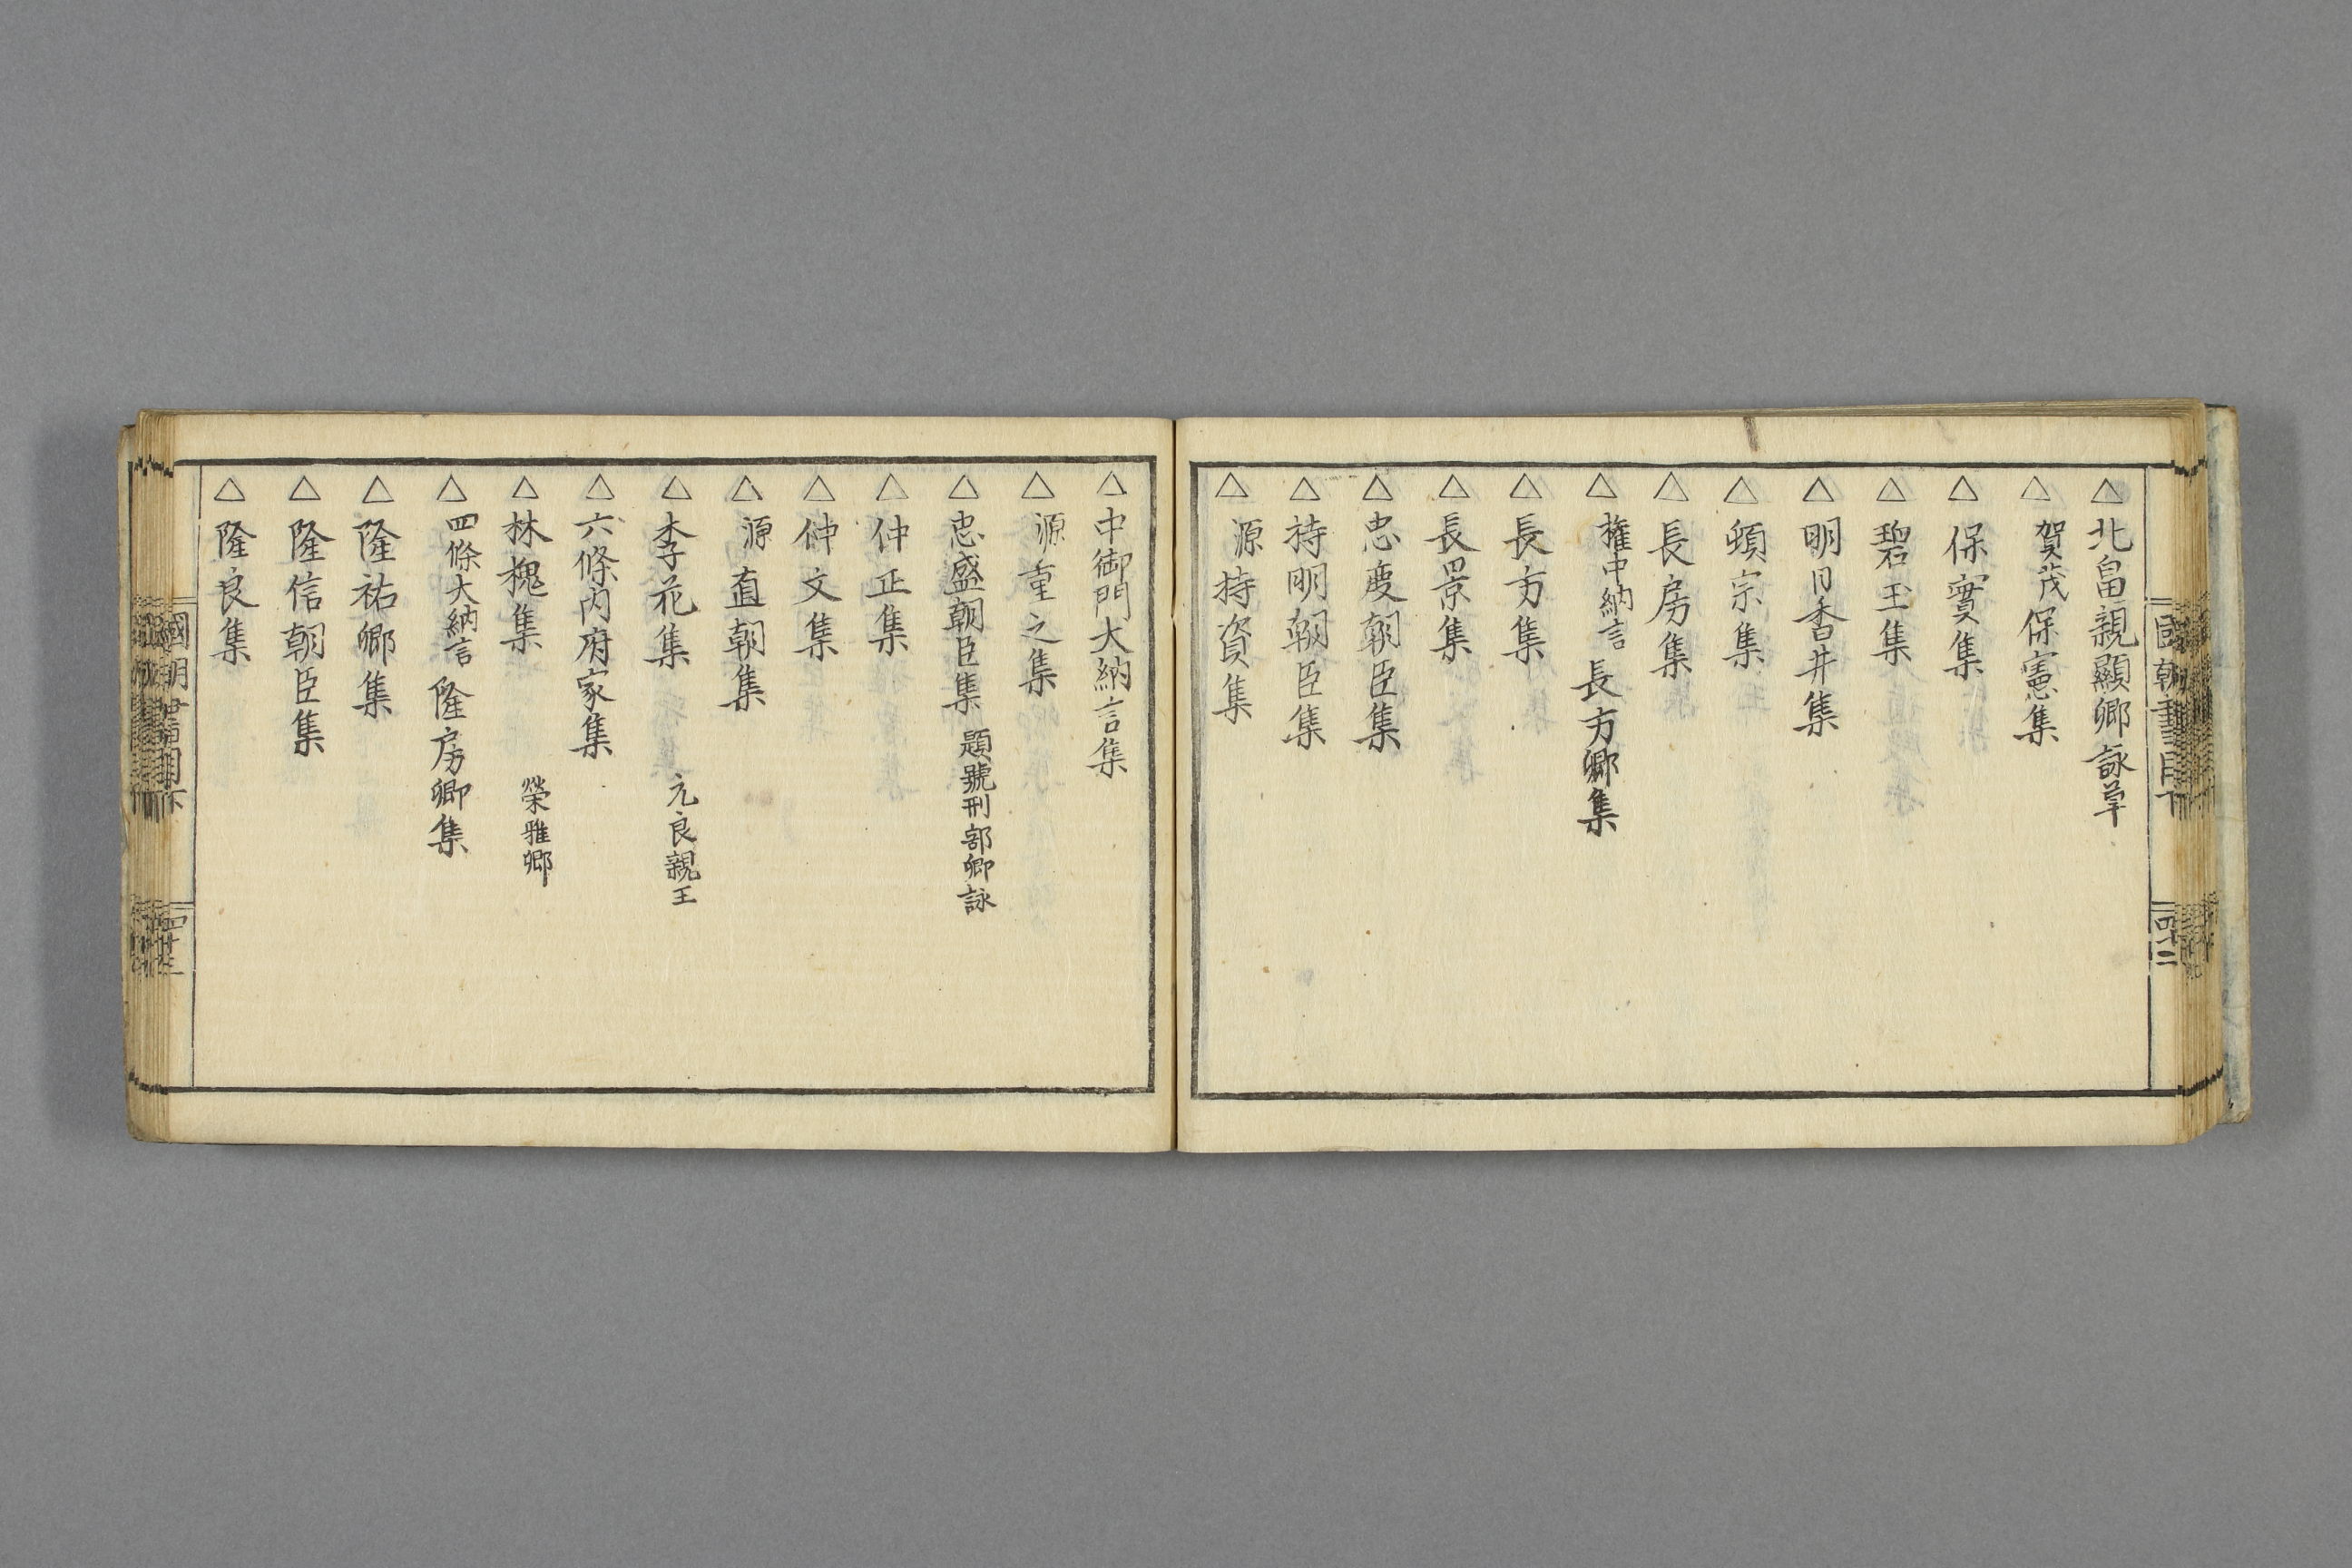 國朝書目下
四十二
△北畠親顯卿詠草
△賀茂保憲集
△保實集
△碧玉集
△明日香井集
△頓宗集
△長房集
△權中納言長方卿集
△長方集
△長景集
△忠度朝臣集
△持明朝臣集
△源持資集
△中御門大納言集
△源重之集
△忠盛朝臣集 題號刑部卿詠
△仲正集
△仲文集
△源直朝集
△李花集 元良親王
△六條内府家集
△林槐集 榮雅卿
△四條大納言隆房卿集
△隆祐卿集
△隆信朝臣集
△隆良集
國朝書目下
四十三